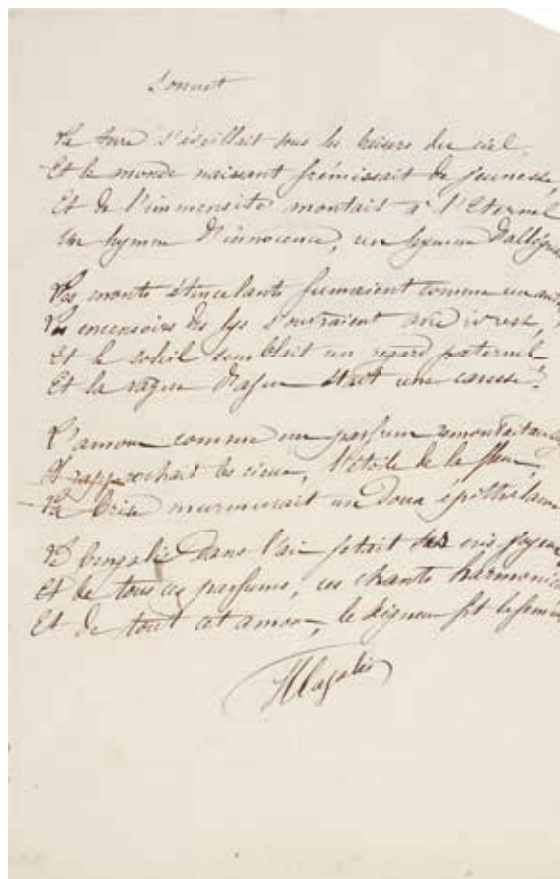 Sonnet
La terre s'éveillait sous les baisers du ciel,
Et le monde naissant frémissait de jeunesse
Et de l'immensité montait à l'Eternel
Un hymne d'innocence, un hymne d'allégres
Les monts étincelants fumaient comme un au
Les encensoirs des lys s'ouvraient avec ivresse,
Et le soleil semblait un regard paternel
Et la vague d'azur était une caresse.
L'amour comme un parfum remontait
Et rapprochait les cieux, l'étoile de la fleur,
La brise murmurait un doux épithalam
Le bengali dans l'air jetait ses cris joyeux
Et de tous ces parfums, ces chants harmonieu
Et de tout cet amour, le Seigneur fit la femme
Magali